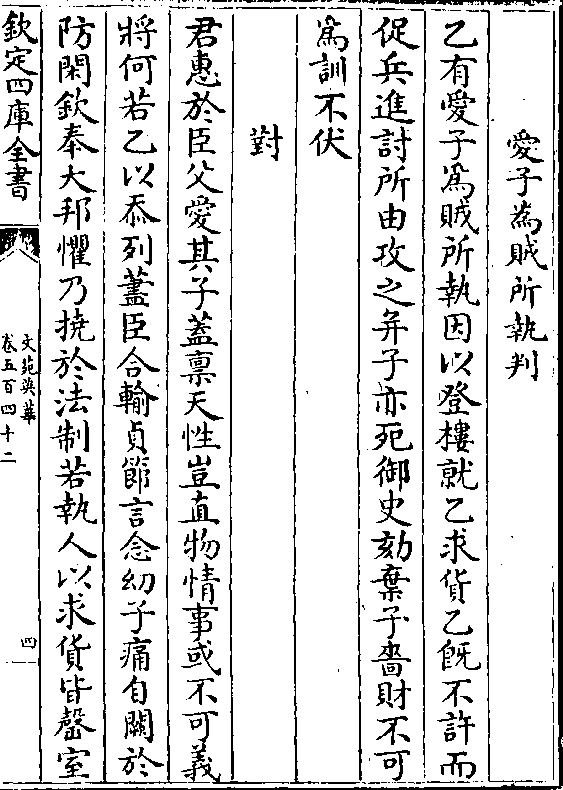 愛子為賊所執判
乙有愛子爲賊所執因以登樓就乙求貨乙旣不許而
促兵進討所由攻之并子亦死御史劾棄子嗇財不可
爲訓不伏
對
君惠於臣父愛其子蓋禀天性豈直物情事或不可義
將何若乙以忝列藎臣合輸貞節言念幼子痛自關於
防閑欽奉大邦懼乃撓於法制若執人以求貨皆罄室
欽定四庫全書
文苑英華
卷五百四十二
四